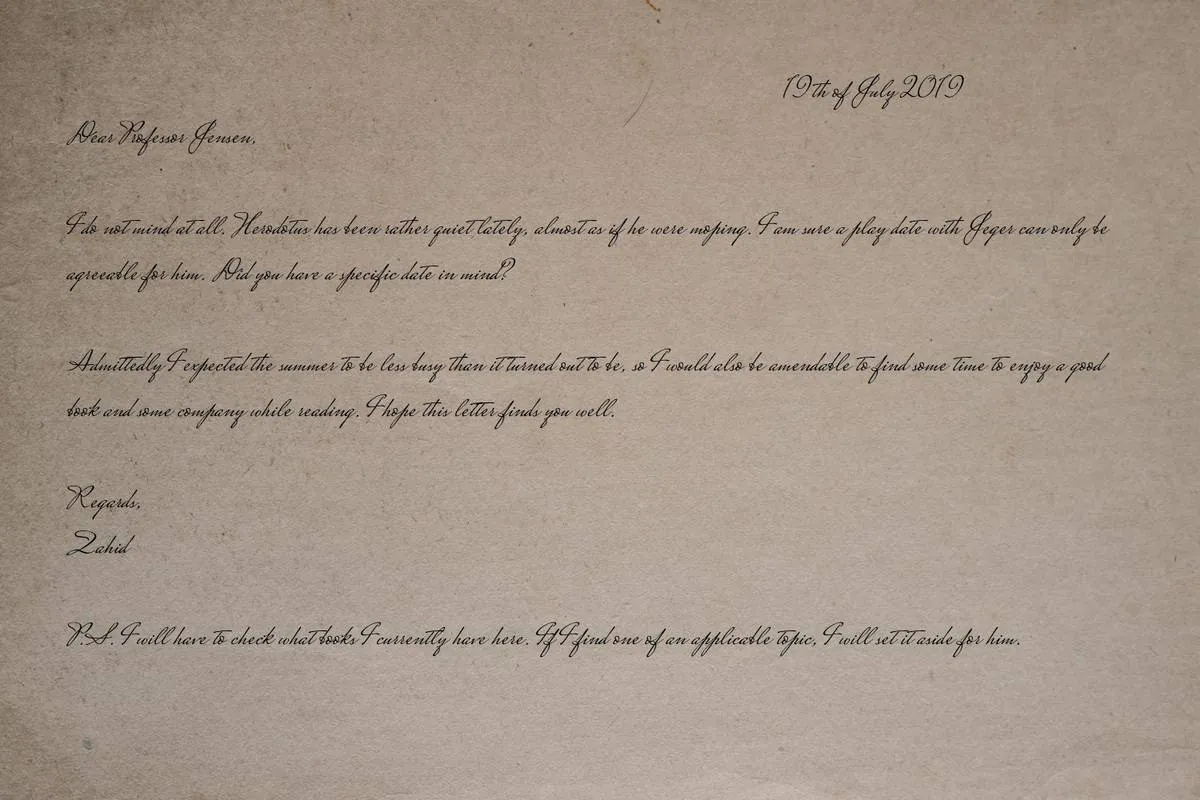 19th of July 2019
Dear Professor Jensen,
I do not mind at all. Herodotus has been rather quiet lately, almost as if he were moping. I am sure a play date with Jeger can only be
agreeable for him. Did you have a specific date in mind?
Admittedly I expected the summer to be less busy than it turned out to be, so I would also be amendable to find some time to enjoy a good
book and some company while reading. I hope this letter finds you well.
Regards,
Zahid
P.S. I will have to check what books I currently have here. If I find one of an applicable topic, I will set it aside for him.